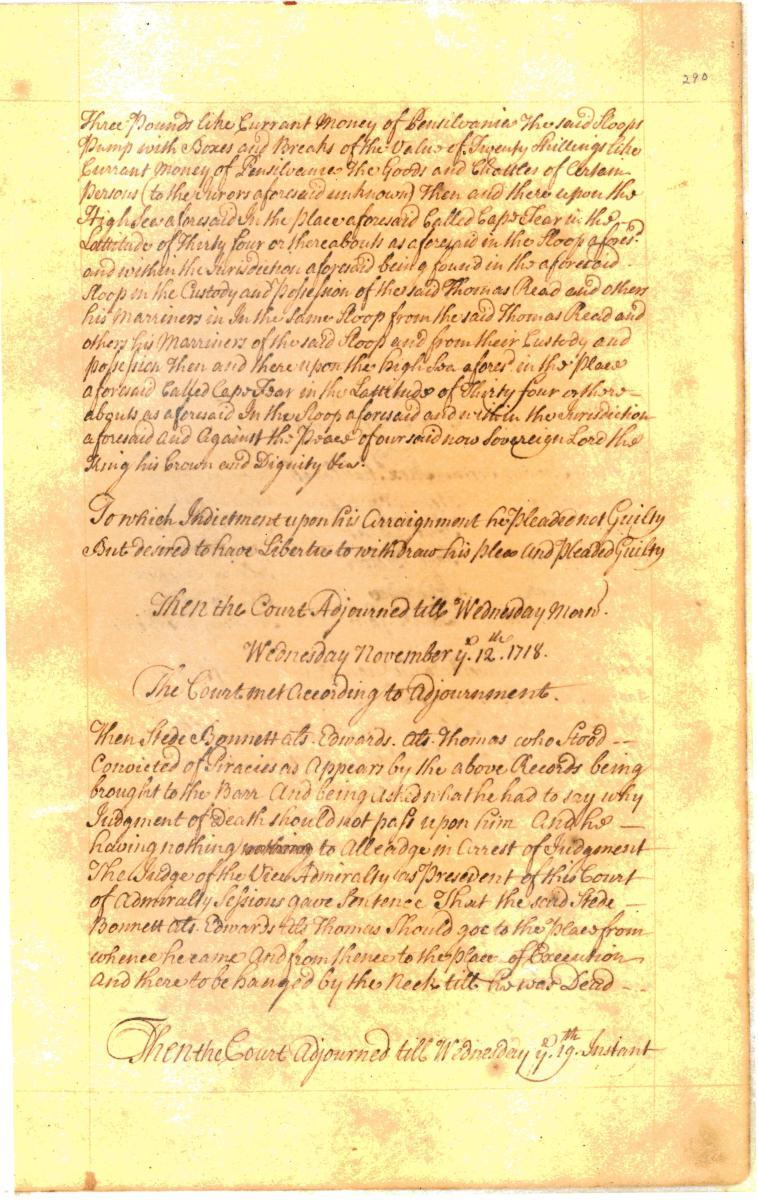 290
Three Pounds like Currant Money of Pensilvania The said Sloops
Pump with Boxes and Breaks of the Value of Twenty Shillings like
Currant Money of Pensilvania The Goods and Chattles of Certain
Persons (to the Jurors aforesaid unknown) Then and there upon the
High Sea aforesaid In the place aforesaid Called Cape Fear in the
Lattitude of Thirty four or thereabouts as aforesaid in the Sloop afores.d
and within the Jurisdiction aforesaid being found in the aforesaid
Sloop in the Custody and Possession of the said Thomas Read and others
his Marriners in In the Same Sloop from the said Thomas Read and
others his Marriners of the said Sloop and from their Custody and
possession Then and there upon the high Sea afores.d in the place
aforesaid Called Cape Fear in the Lattitude of Thirty four or there=
abouts as aforesaid In the Sloop aforesaid and within the Jurisdiction
aforesaid And Against the Peace of our said now Sovereign Lord the
King his Crown and Dignity &ca.
To which Indictment upon his Arraignment he Pleaded not Guilty
But desired to have Liberty to withdraw his plea And pleaded Guilty
Then the Court Adjourned till Wednesday Morn.
Wednesday November y.e 12.th 1718.
The Court met According to Adjournment.
Then Stede Bonnett als. Edwards. als. Thomas who Stood --
Convicted of Piracies as Appears by the above Records being
brought to the Barr And being Asked what he had to say why
Judgment of Death should not pass upon him And he —
having nothing nothing to Alleadge in Arrest of Judgment
The Judge of the Vice Admiralty as President of this Court
of Admiralty Sessions gave Sentence That the said Stede —
Bonnett als. Edwards als Thomas Should goe to the place from
whence he came And from thence to the place of Execution
And there to be hanged by the Neck till he was Dead - -
Then the Court Adjourned till Wednesday y.e 19.th Instant